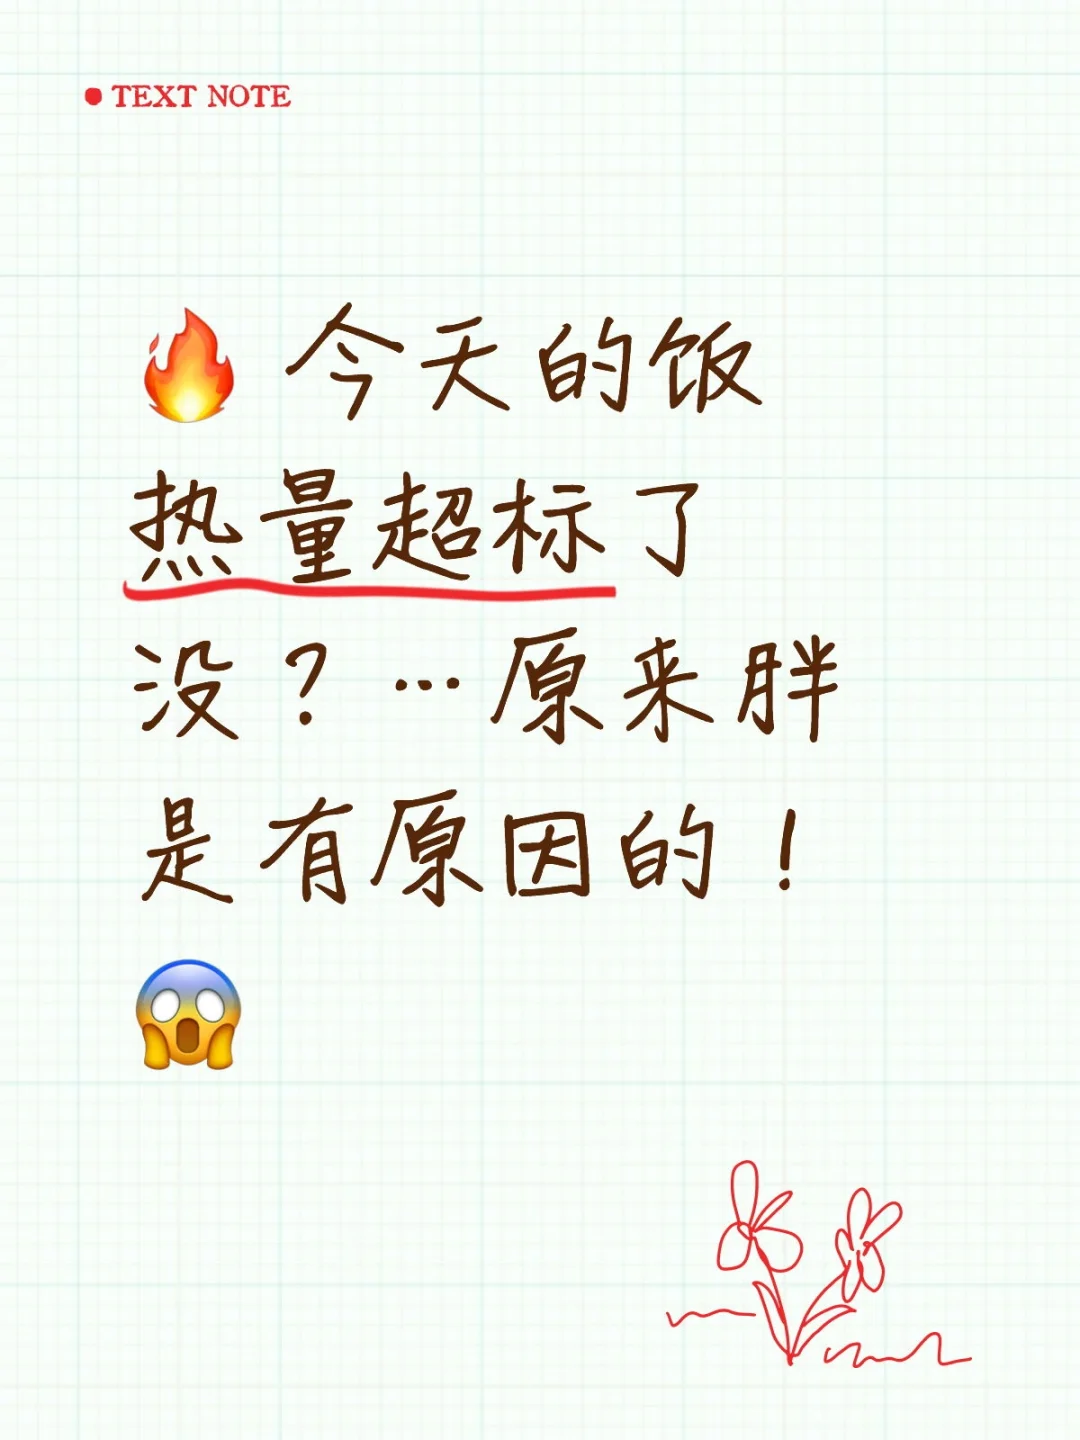 TEXT NOTE
🔥 今天的饭
热量超标了
没？…原来胖
是有原因的！
😱